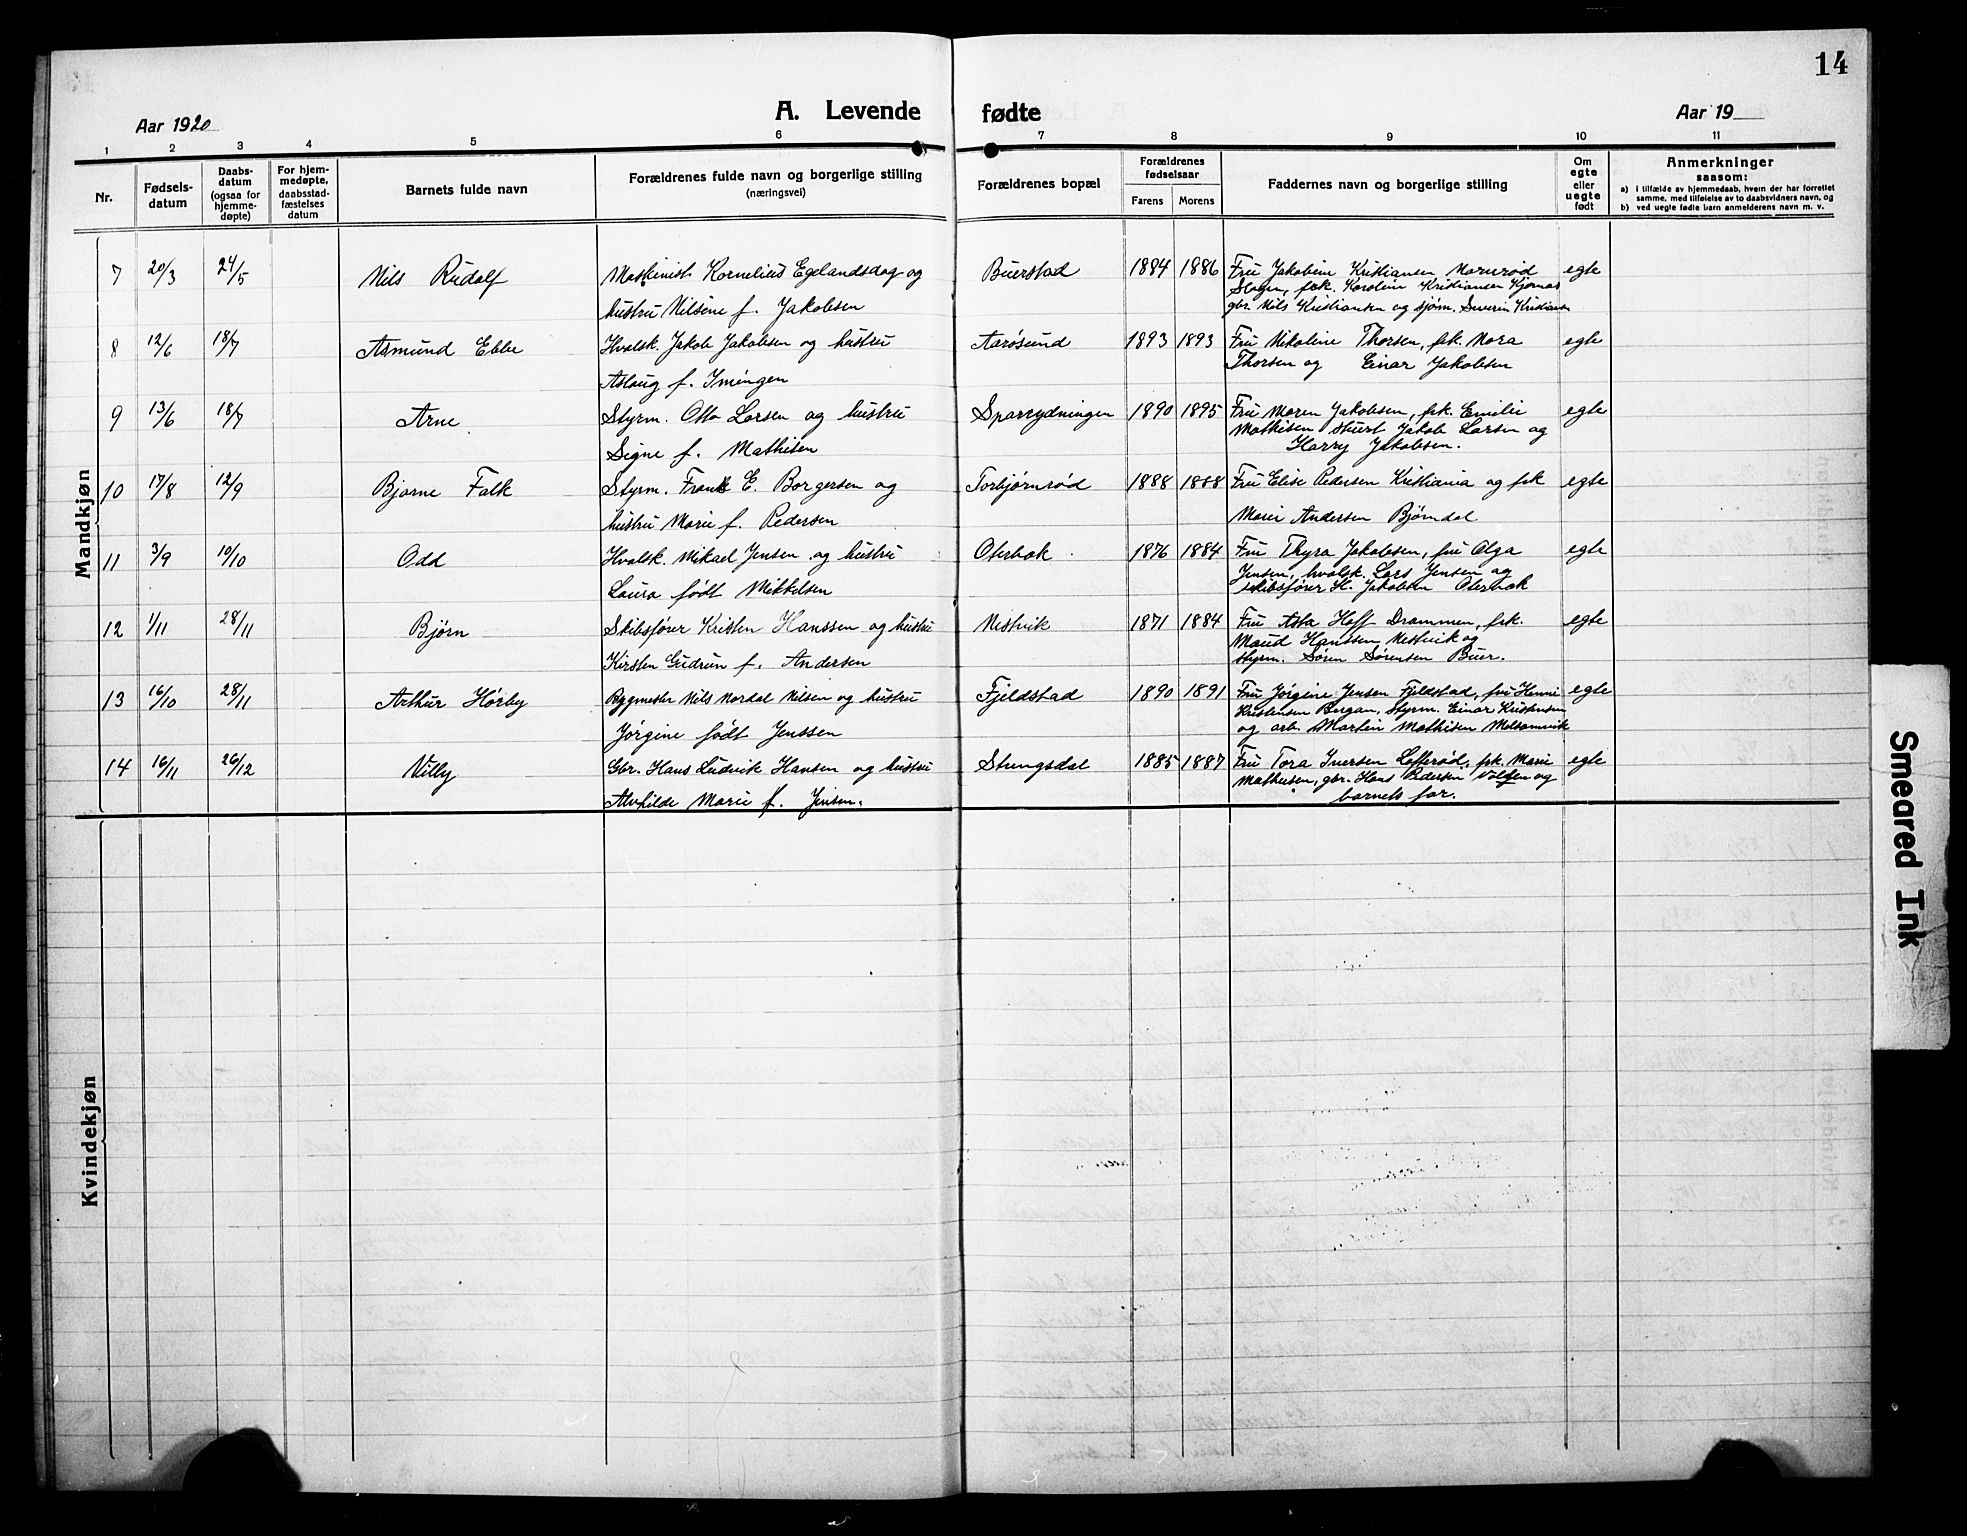 14
Aar 1920
A. Levende fødte
Aar 19
1 2 3 4 5 6 7 8 9 10 11
Nr.
Fødsels-
datum
Daabs-
datum
(ogsaa for
hjemme-
døpte)
For hjem-
medøpte,
daabsstad-
fæstelses
datum
Barnets fulde navn
Forældrenes fulde navn og borgerlige stilling
(næringsvei)
Forældrenes bopæl
Forældrenes
fødselsaar
Farens Morens
Faddernes navn og borgerlige stilling
Om
egte
eller
uegte
født
Anmerkninger
saasom:
a) i tilfælde av hjemmedaab, hvem der har forrettet
samme, med tilføielse av to daabsvidners navn, og
b) ved uegte fødte barn anmelderens navn m. v.
Mandkjøn
7 20/3 24/5 Nils Rudolf Maskinist Kornelius Egelandsdag og Buerstad 1884 1886 Fru Jakobine Kristiansen Marnrød egte
hustru Nilsine f. Jakobsen
Slagen, frk. Karoline Kristiansen Kjørnas
gbr. Nils Kristiansen og sjøm. Severin Kristiansen
8 12/6 18/7 Asmund Ebbe Hvalsk. Jakob Jakobsen og hustru Aarøsund 1893 1893 Fru Nikoline Thorsen, frk. Nora egte
Aslaug f. Imingen Thorsen og Einar Jakobsen
9 13/6 18/7 Arne Styrm. Otto Larsen og hustru Sparrydningen 1890 1895 Fru Maren Jakobsen, frk. Emilie egte
Signe f. Mathisen
Mathisen stuert Jakob Larsen og
Harry Jakobsen.
10 17/8 12/9 Bjarne Falk Styrm. Frank E. Borgersen og Torbjørnrød 1888 1888 Fru Elise Pedersen Kristiania og frk egte
hustru Marie f. Pedersen Marie Andersen Bjørndal
11 3/9 10/10 Odd Hvalsk. Mikael Jensen og hustru Oterbæk 1876 1884 Fru Thyra Jakobsen, fru Olga egte
Laura født Mikkelsen
Jensen, hvalsk. Lars Jensen og
skibsfører H. Jakobsen Oterbæk
12 1/11 28/11 Bjørn Skibsfører Kristen Hanssen og hustru Nestvik 1871 1884 Fru Asta Hoff Drammen, frk. egte
Kirsten Gudrun f. Andersen
Maud Hanssen Nestvik og
styrm. Søren Sørensen Buer.
13 16/10 28/11 Arthur Hørby Bygmester Nils Nordal Nilsen og hustru Fjeldstad 1890 1891 Fru Jørgine Jensen Fjeldstad, fru Henni egte
Jørgine født Jenssen
Kristensen Bergan, Styrm. Einar Kristensen
og arb. Martin Mathisen Melsomvik
14 16/11 26/12 Villy Gbr. Hans Ludvik Hansen og hustru Strengsdal 1885 1887 Fru Tora Iversen Lofterød, frk. Marie egte
Alvhilde Marie f. Jensen.
Mathisen, gbr. Hans Pedersen og
barnets far.
Kvindekjøn
Smeared Ink